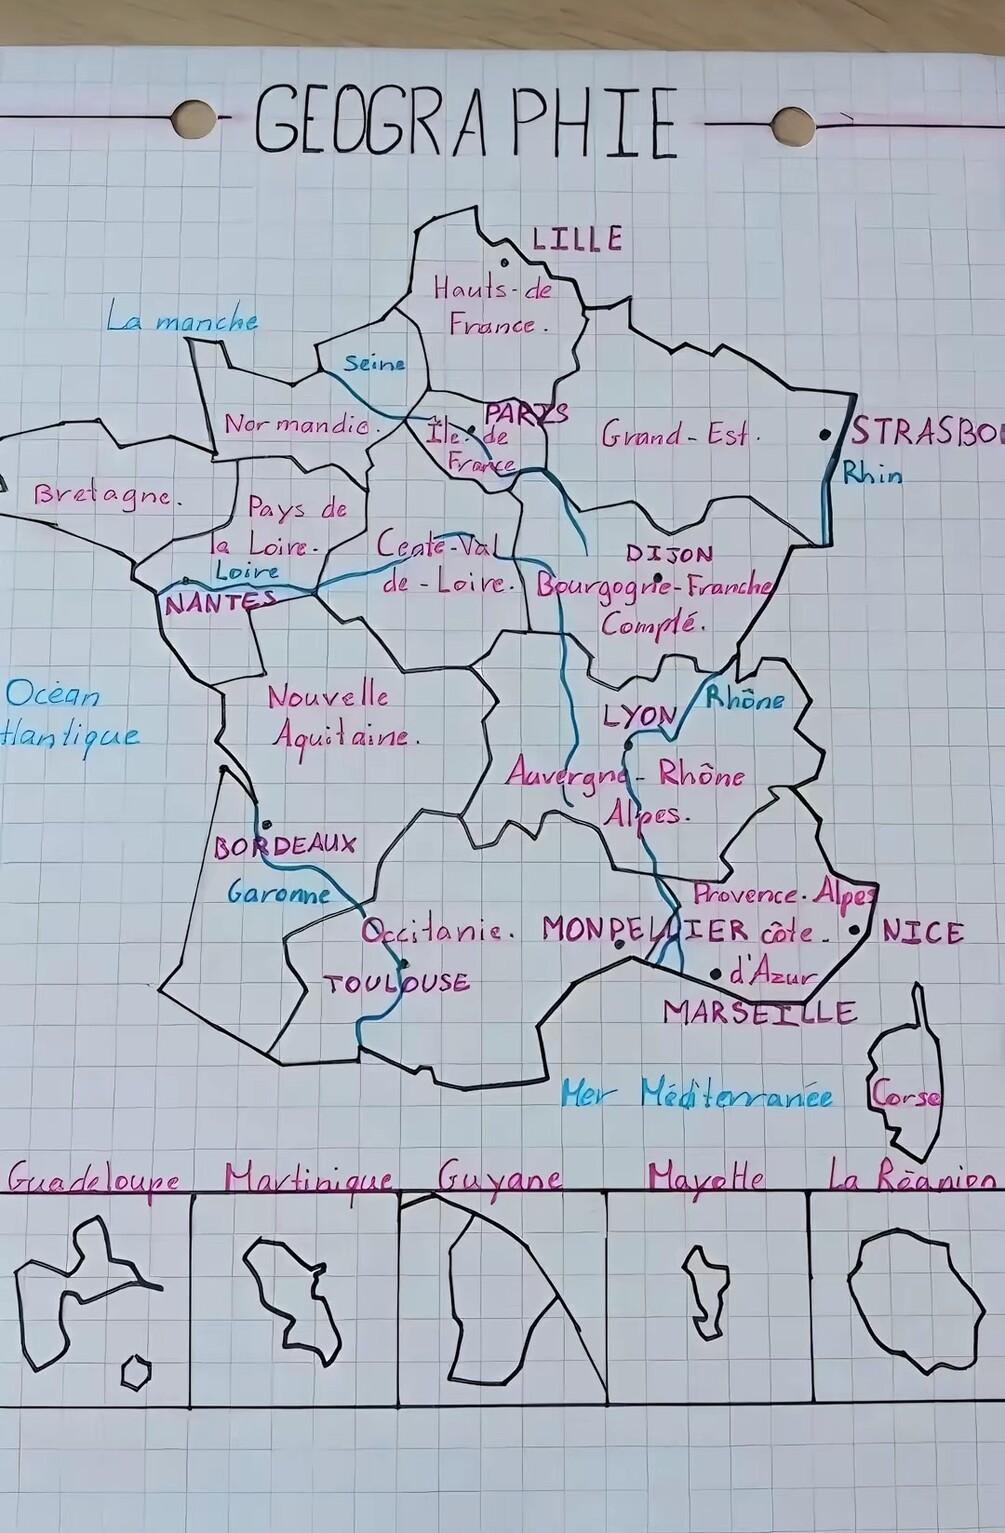 GEOGRAPHIE
LILLE
Hauts-de
France.
La manche
Seine
PARIS
Normandie.
Île de
France
Grand-Est.
STRASBO
Rhin
Bretagne.
Pays de
la Loire.
Loire
NANTES
Cente-Val
de-Loire.
DIJON
Bourgogne-Franche
Complé.
Océan
tlantique
Nouvelle
Aquitaine.
LYON
Rhône
Auvergne-Rhône
Alpes.
BORDEAUX
Garonne
Occitanie.
TOULOUSE
MONPELLIER
Provence.Alpes
côte.
d'Azur
NICE
MARSEILLE
Mer Méditerranée
Corse
Guadeloupe
Martinique
Guyane
Mayotte
La Réunion